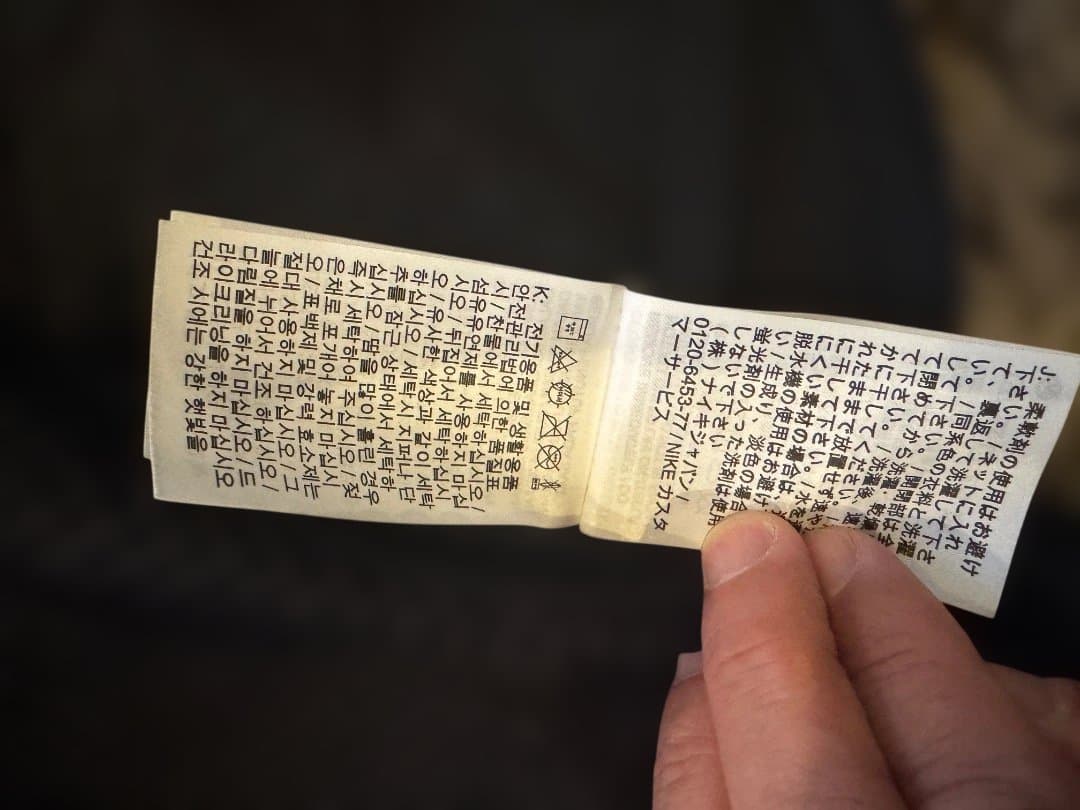 J: 柔軟剤の使用はお避け
下さい。ネットに入れ
裏返して洗濯して下さ
い。同系色の衣料と洗濯
して下さい。/開閉部は全
て閉めてから洗濯
して下さい。/洗濯後乾燥
かに干してください。
れたままで放置せず速や
に干して下さい。/水を
にくい素材の場合は、
脱水機の使用はお避け
い/生成り、淡色の場合
蛍光剤の入った洗剤は使用
しないで下さい
(株)ナイキジャパン/
0120-6453-77/NIKE カスタ
マーサービス
K: 전기용품 및 생활용품
안전관리법에 의한 품질표
시/ 찬물에서 세탁하십시오/
섬유유연제를 사용하지 마십
시오/ 뒤집어서 세탁하십시
오/ 유사한 색상과 같이 세탁
하십시오/ 세탁시 지퍼나 단
추를 잠근 상태에서 세탁하
십시오/ 땀을 많이 흘린 경우
즉시 세탁하여 주십시오/ 젖
은 채로 포개어 놓지 마십시
오/ 표백제 및 강력 효소제는
절대 사용하지 마십시오/ 그
늘에 뉘어서 건조 하십시오/
다림질을 하지 마십시오/ 드
라이크리닝을 하지 마십시오
건조 시에는 강한 햇빛을